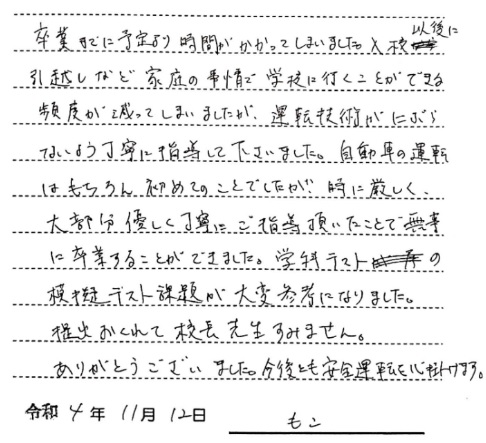 卒業までに予定より時間がかかってしまいました。入校以後に
引越しなど家庭の事情で学校に行くことができる
頻度が減ってしまいましたが、運転技術がにぶら
ないよう丁寧に指導して下さいました。自動車の運転
はもちろん初めてのことでしたが、時に厳しく、
大部分優しく丁寧にご指導頂いたことで無事
に卒業することができました。学科テストの
模擬テスト課題が大変参考になりました。
提出おくれて校長先生すみません。
ありがとうございました。今後とも安全運転を心掛けます。
令和 4 年 11月 12日 もこ